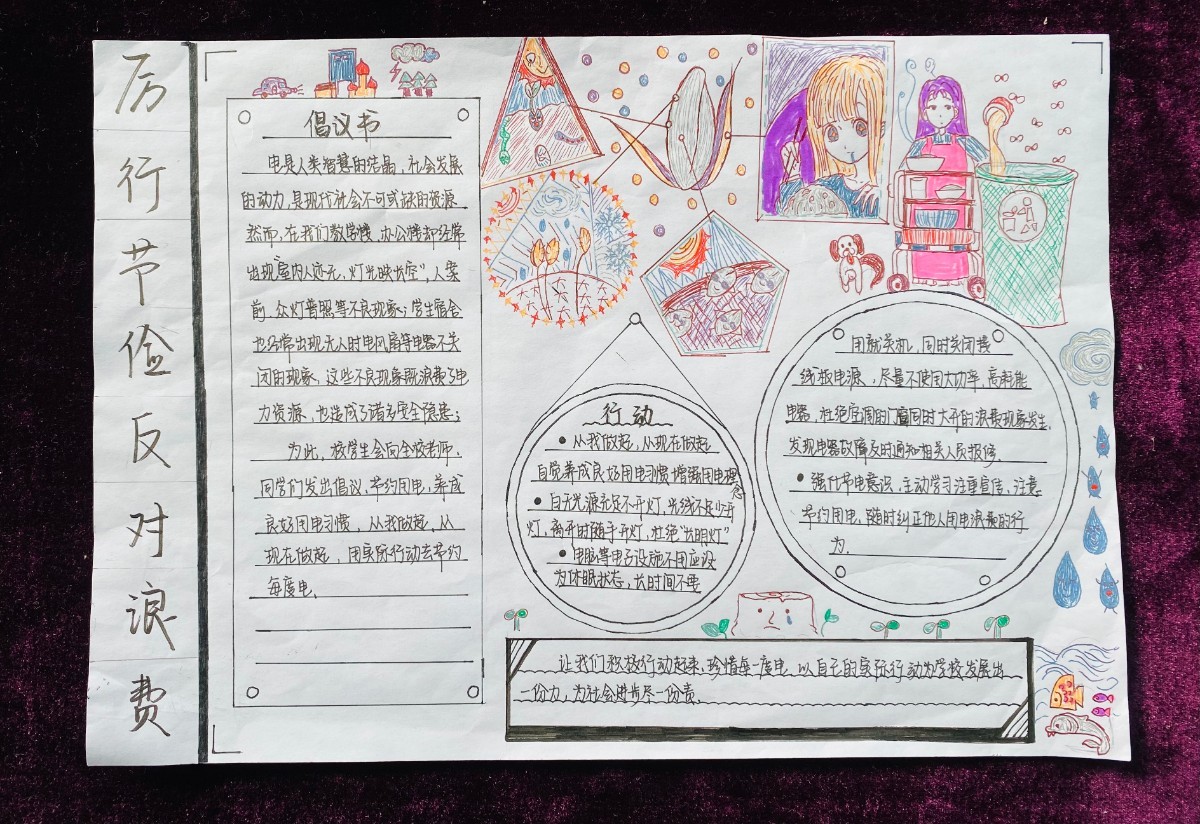 厉行节俭反对浪费
倡议书
电是人类智慧的结晶,社会发展
的动力,是现代社会不可或缺的资源
然而,在我们教学楼,办公楼却经常
出现"室内人迹无,灯光映长空",人寡
前,众灯普照等不良现象;学生宿舍
也经常出现无人时电风扇等电器不关
闭的现象、这些不良现象既浪费了电
力资源,也造成了诸多安全隐患;
为此,校学生会向全校老师、
同学们发出倡议,节约用电,养成
良好用电习惯,从我做起,从
现在做起,用实际行动去节约
每度电。
行动
• 从我做起,从现在做起
自觉养成良好用电习惯 增强用电理念
• 自无光源充足不开灯,光线不足少开
灯,离开时随手开灯,杜绝"长明灯"
• 电脑等电子设施不用应设
为休眠状态,长时间不要
用就关机,同时关闭接
线板电源,尽量不使用大功率,高耗能
电器,杜绝空调的门窗同时大开的浪费现象发生,
发现电器故障及时通知相关人员报修.
• 强化节电意识,主动学习注重宣传、注意
节约用电,随时纠正他人用电浪费的行
为.
让我们积极行动起来,珍惜每一度电,以自己的实际行动为学校发展出
一份力,为社会进步尽一份责.